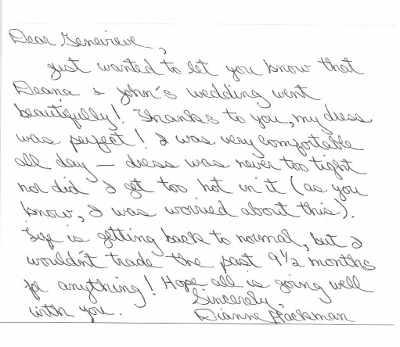 Dear Genevieve,
Just wanted to let you know that
Deana & John's wedding went
beautifully! Thanks to you, my dress
was perfect! I was very comfortable
all day — dress was never too tight
nor did I get too hot in it (as you
know, I was worried about this).
Life is getting back to normal, but I
wouldn't trade the past 9 1/2 months
for anything! Hope all is going well
with you.
Sincerely,
Dianne Hackman